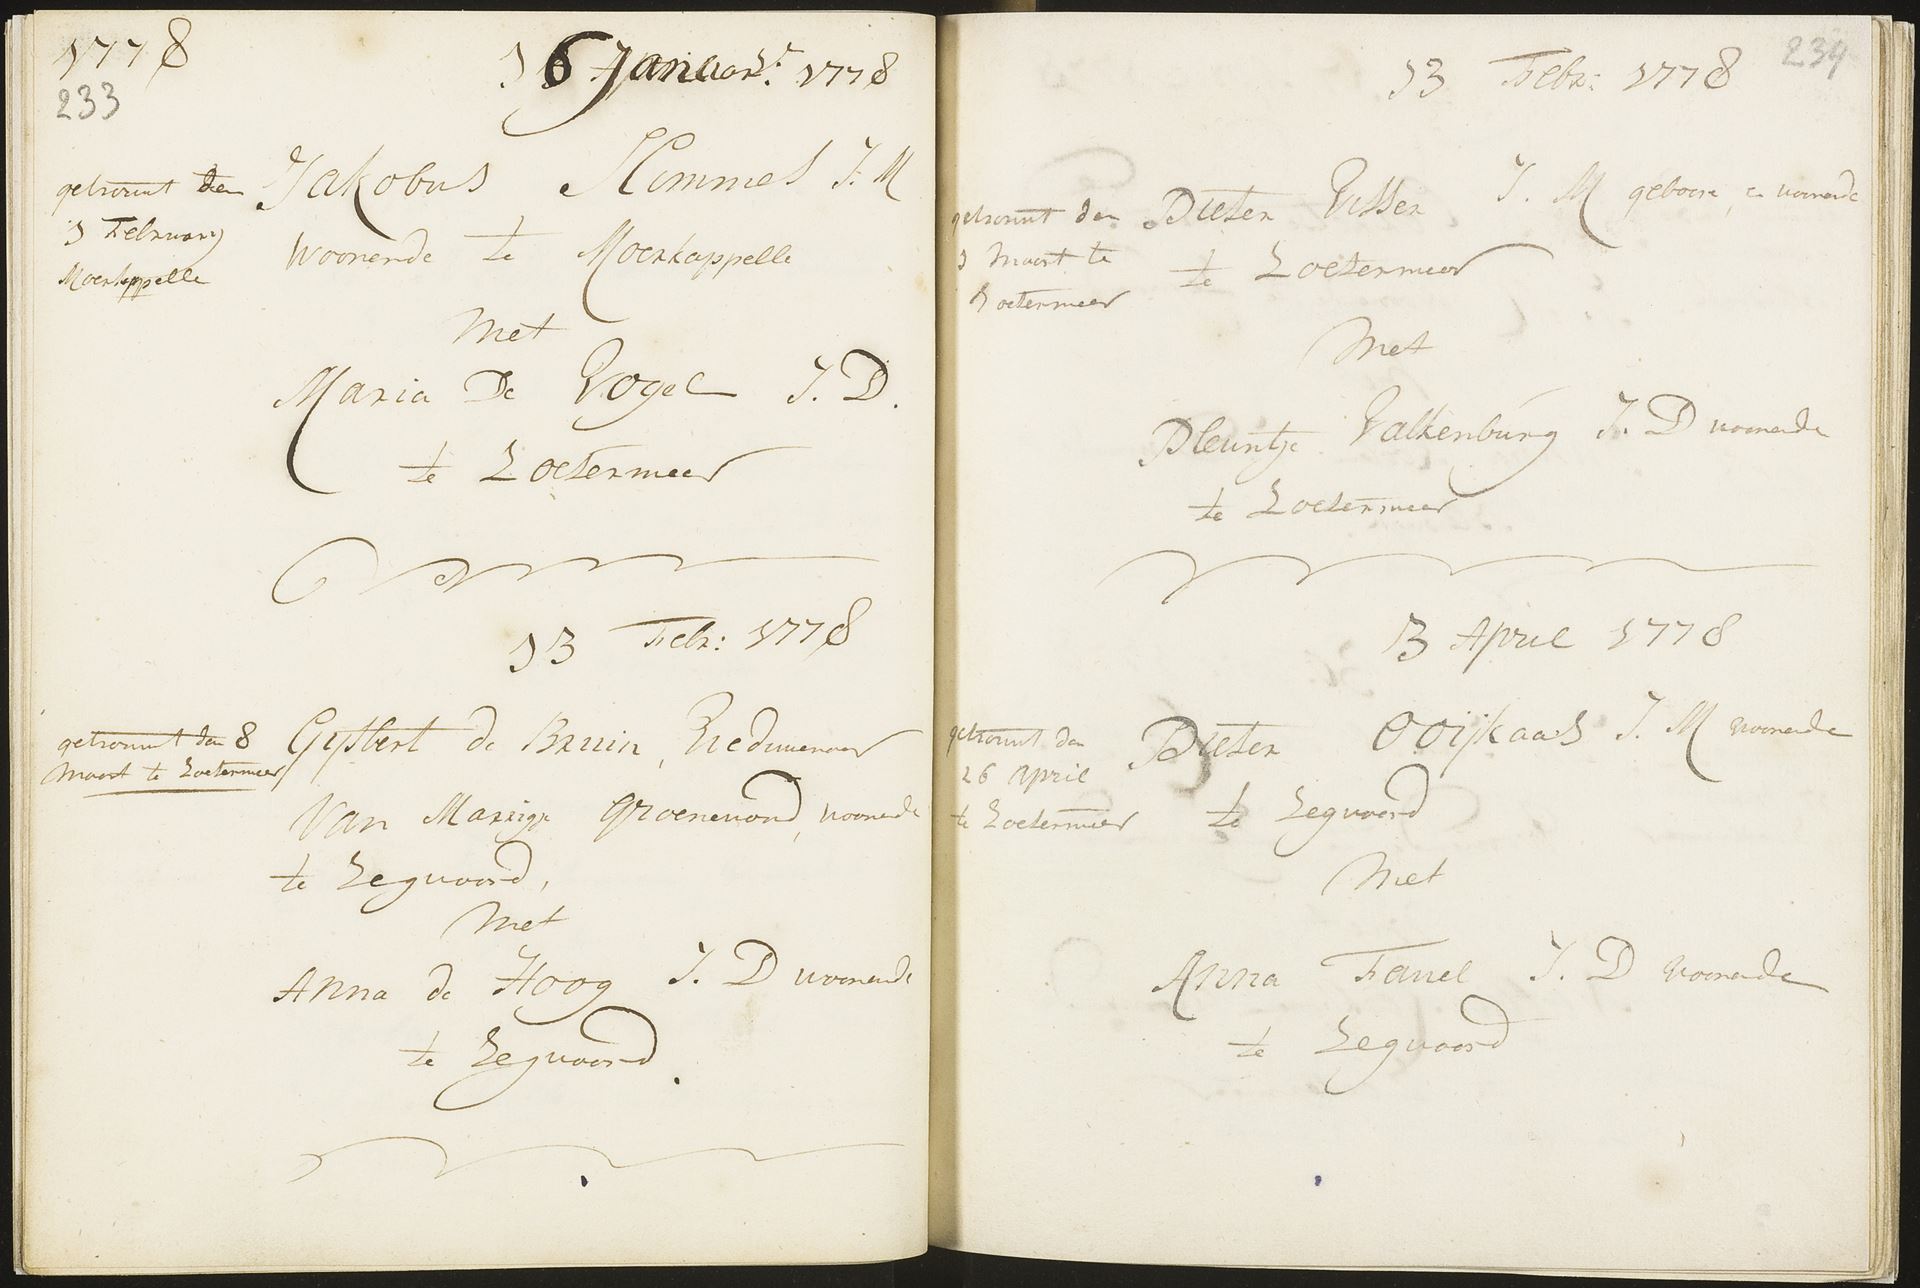 1778
233
16 Januar: 1778
getrouwt den
1 February
Moerkappelle
Jakobus Hemmes J. M
woonende te Moerkappelle
Met
Maria De Vogel J. D.
te Zoetermeer
13 Febr: 1778
getrouwt den 8
Maart te Zoetermeer
Gysbert de Bruin, Weduwenaar
Van Marrigje Groenewoud, woonende
te Zegwaard,
Met
Anna de Hoog J. D woonende
te Zegwaard
234
13 Febr: 1778
getrouwt den
1 Maart te
Zoetermeer
Pieter Visser J. M geboore, en woonende
te Zoetermeer
Met
Pleuntje Valkenburg J. D woonende
te Zoetermeer
3 April 1778
getrouwt den
26 April
te Zoetermeer
Pieter Ooijkaas J. M woonende
te Zegwaard
Met
Anna Tanel J. D woonende
te Zegwaard